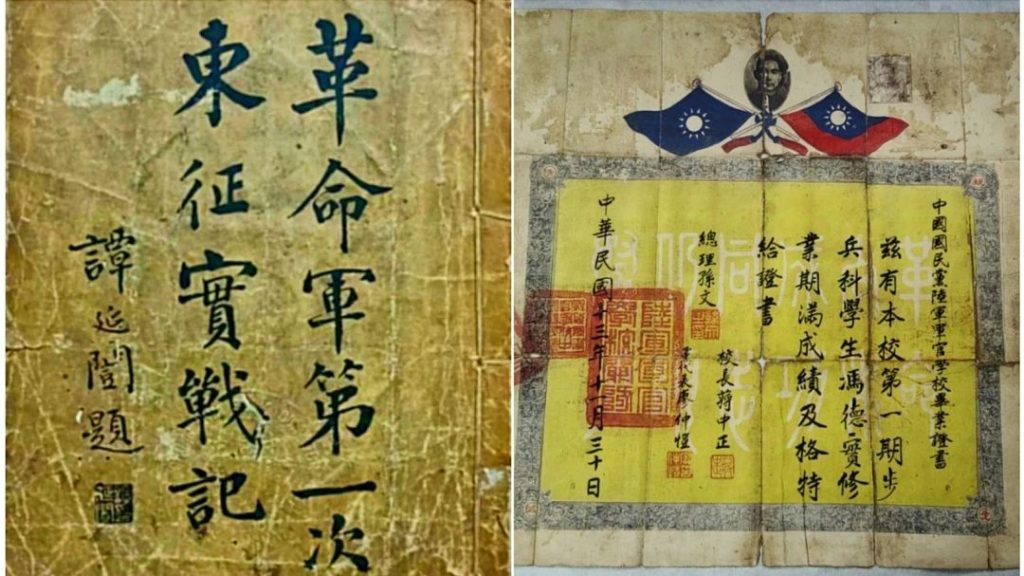 革命軍第一次
東征實戰記
譚延闓題
中國國民黨陸軍軍官學校畢業證書
茲有本校第一期步
兵科學生馮德實修
業期滿成績及格特
給證書
總理孫文
校長蔣中正
黨代表廖仲愷
中華民國十三年十一月三十日